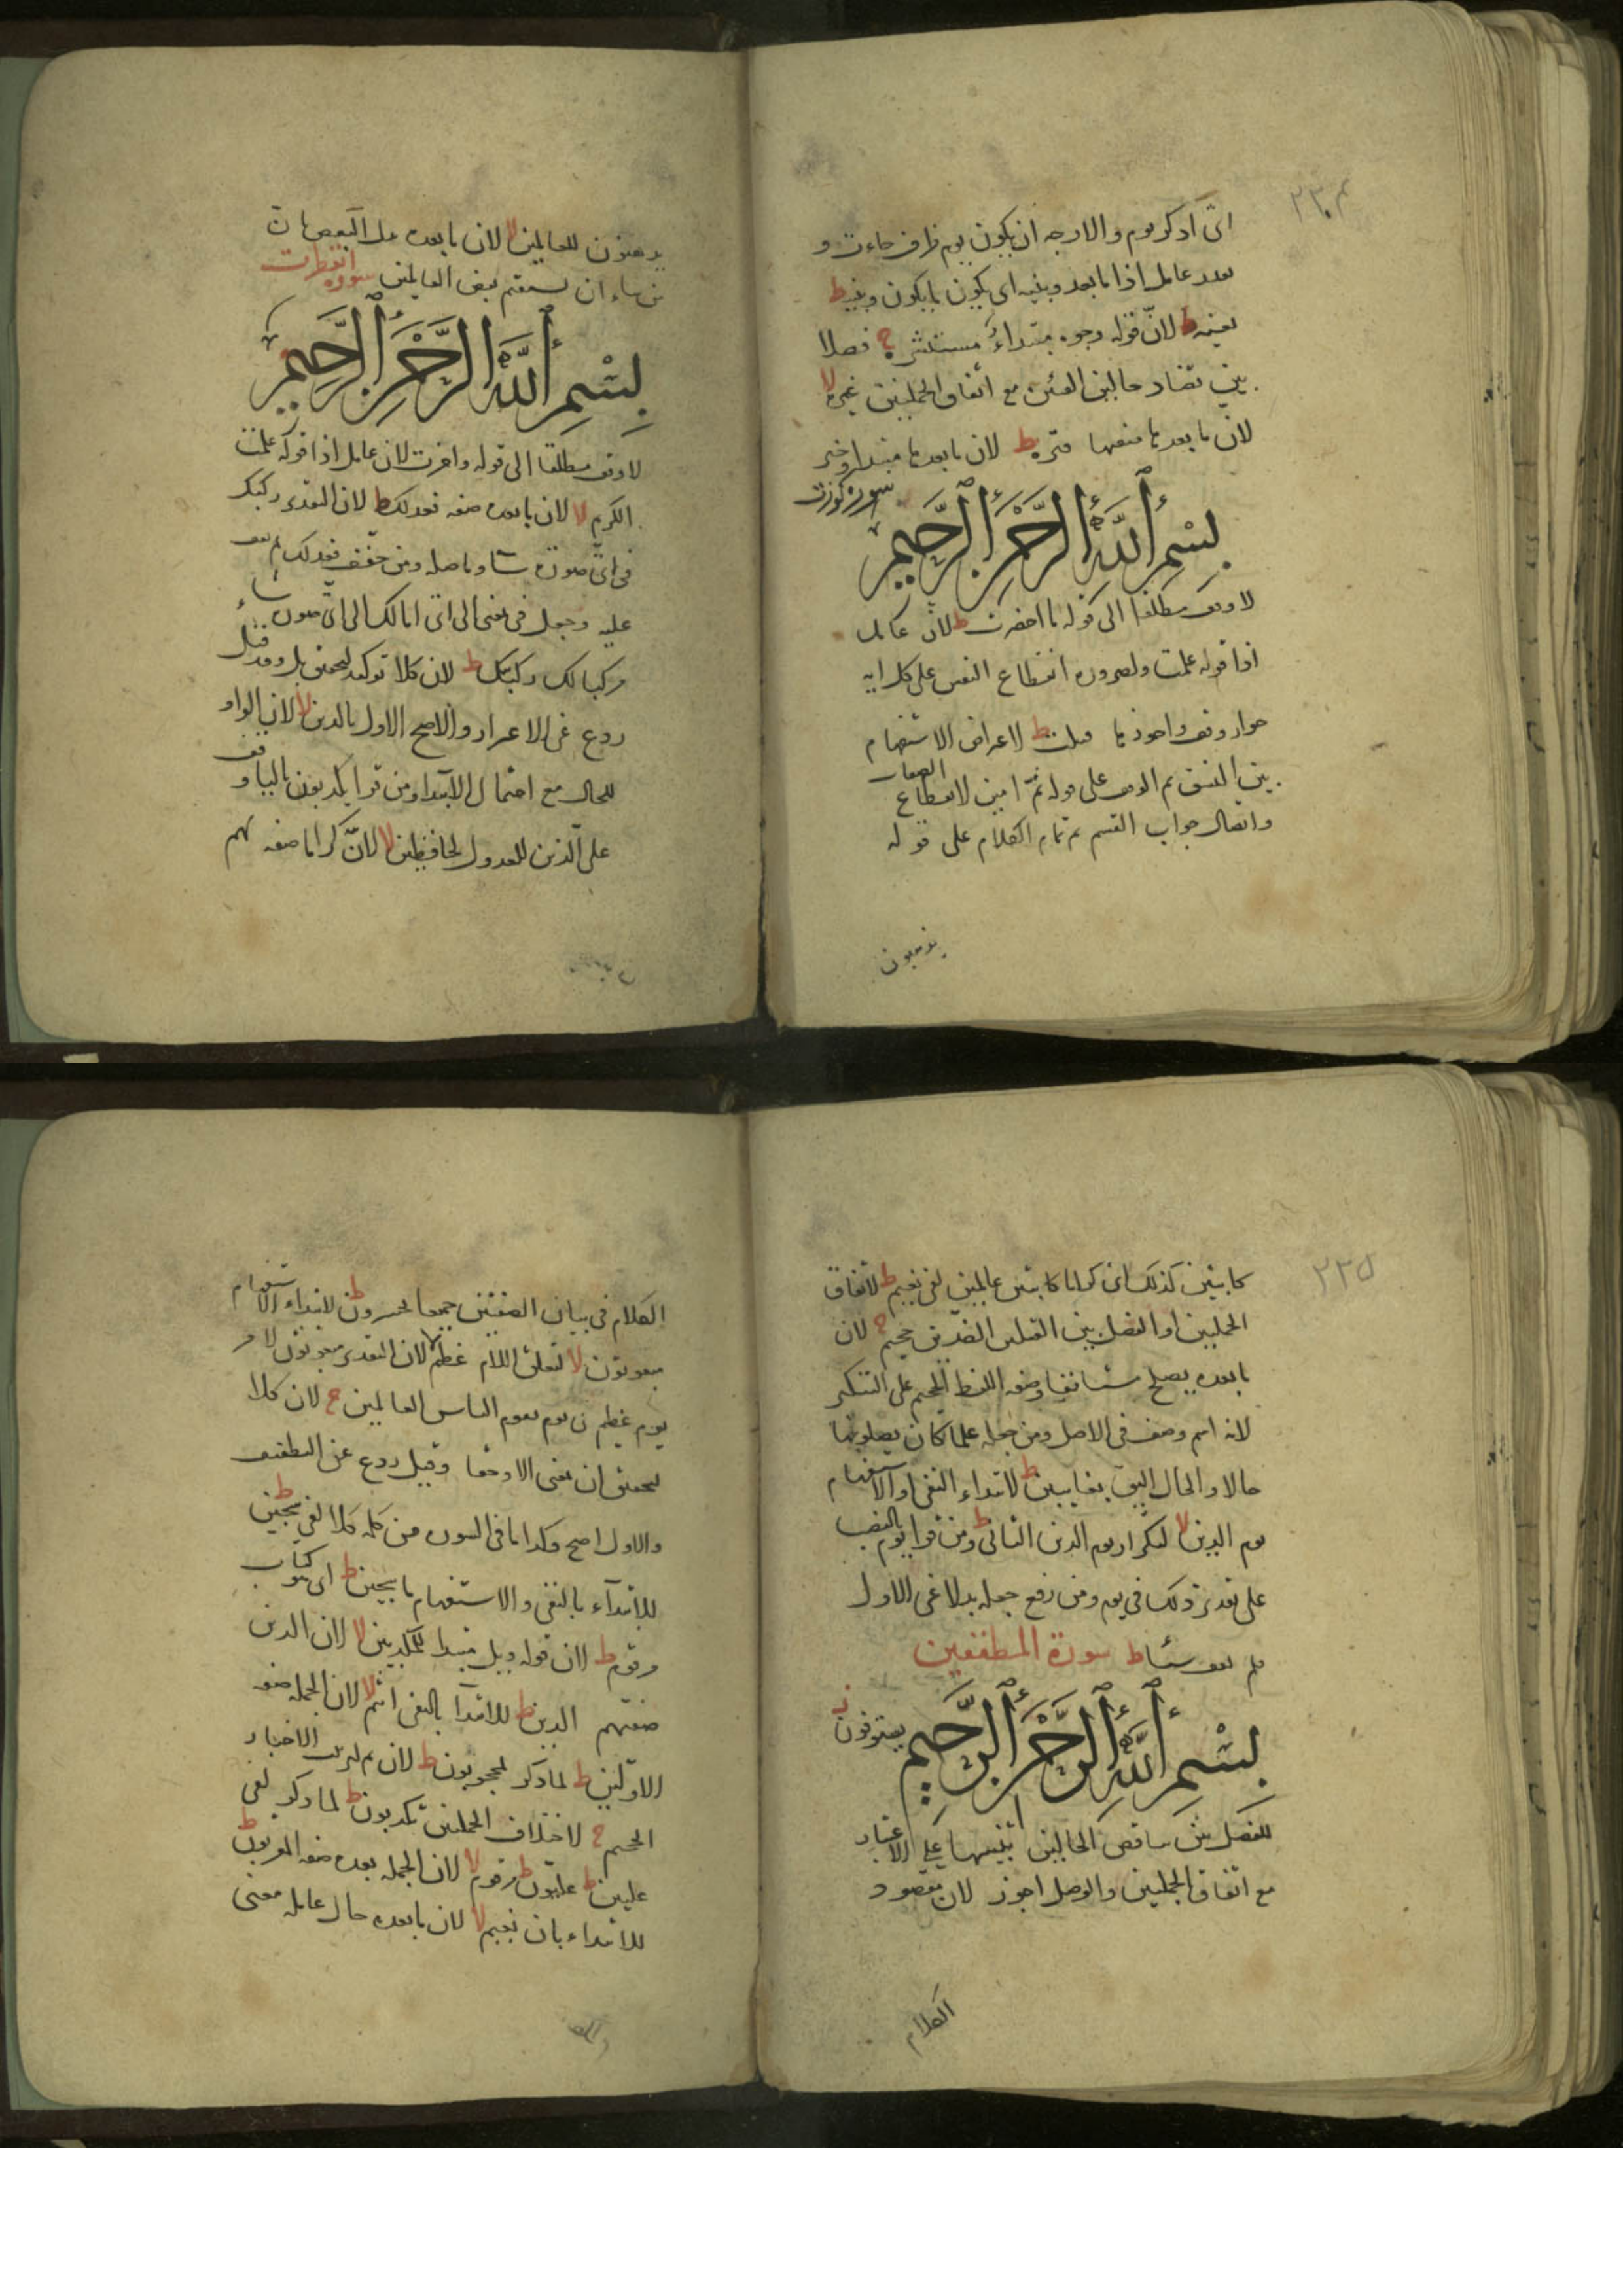 ٢٣٤
اى اذكر يوم والاوجه ان يكون يوم ظرف جاءت و
عامل اذا ما بعد وبنيه اى يكون ما يكون وبنيه ط
يغنيه ط لان قوله وجوه مبتداء مستبشرة ج فصلا
بين تضاد حالين الفئتين مع اتفاق الجملتين غبرة لا
لان ما بعدها صفتها قترة ط لان ما بعدها مبتدا وخبر
سورة كورت
بِسْمِ ٱللَّهِ ٱلرَّحْمَٰنِ ٱلرَّحِيمِ
لا وقف مطلقا الى قوله ما احضرت ط لان عامل
اذا قوله علمت ولضرورة انقطاع النفس على كل اية
جواز وقف قتلت ط لاعراض الاستفهام
بين النسق ثم الوقف على قوله ثم امين لانقطاع الصفات
واتصال جواب القسم ثم تمام الكلام على قوله
تذهبون
تذهبون للعالمين لا لان ما بعده بدل البعض
من شاء ان يستقيم بعض العالمين سورة انفطرت
بِسْمِ ٱللَّهِ ٱلرَّحْمَٰنِ ٱلرَّحِيمِ
لا وقف مطلقا الى قوله واخرت لان عامل اذا قوله علمت
الكريم لا لان ما بعده صفه فعدلك ط لان التقدير ركبك
فى اى صورة شاء وما صله ومن خفف فعدلك لم يقف
عليه وجعل فى بمعنى الى اى امالك الى اى صورة شاء
ركبك ط لان كلا توكيد لتحقيق بل وقد قيل
ردع عن الاغترار والاصح الاول بالدين لا لان الواو
للحال مع احتمال الابتدا ومن قرا يكذبون بالياء وقف
على الدين للعدول لحافظين لا لان كراما صفه لهم
٢٣٥
كاتبين كذلك اى كراما كاتبين عالمين لفى نعيم ط لاتفاق
الجملتين او الفصل بين الضدين جحيم ج لان
ما بعده يصلح مستانفا وصفه للفظ الجحيم على التنكير
لانه اسم وصف فى الاصل ومن جعله علما كان يصلونها
حالا والحال اليق بغايبين ط لابتداء النفى او الاستفهام
يوم الدين لا لتكرار يوم الدين الثانى ط ومن قرا يوم بالنصب
على تقدير ذلك فى يوم ومن رفع جعله بدلا عن الاول
فلم يقف شيئا ط سورة المطففين
بِسْمِ ٱللَّهِ ٱلرَّحْمَٰنِ ٱلرَّحِيمِ يستوفون
للفصل بين تناقض الحالين تنبيها على الاعتبار
مع اتفاق الجملتين والوصل اجوز لان مقصود
الكلام
الكلام فى بيان الصفتين جميعا يخسرون ط لابتداء الاستفهام
مبعوثون لا لتعلق اللام عظيم لا لان التقدير مبعوثون
يوم عظيم يوم يقوم الناس العالمين ج لان كلا
لتحقيق ان بمعنى الا وحقا وقيل ردع عن التطفيف
والاول اصح وكذا ما فى السورة من كلمه كلا لفى سجين ط
للابتداء بالنفى والاستفهام ما سجين ط اى هو كتاب
مرقوم ط لان قوله ويل مبتدا للمكذبين لا لان الذين
صفتهم الدين ط للابتدا بالنفى اثيم لا لان الجمله صفه
الاولين ط لما ذكر لمحجوبون ط لان ثم لترتيب الاخبار
الجحيم ج لاختلاف الجملتين تكذبون ط لما ذكر لفى
عليين ط عليون ط مرقوم لا لان الجمله بعده صفه المقربون ط
للابتداء بان نعيم لا لان ما بعده حال عامله معنى